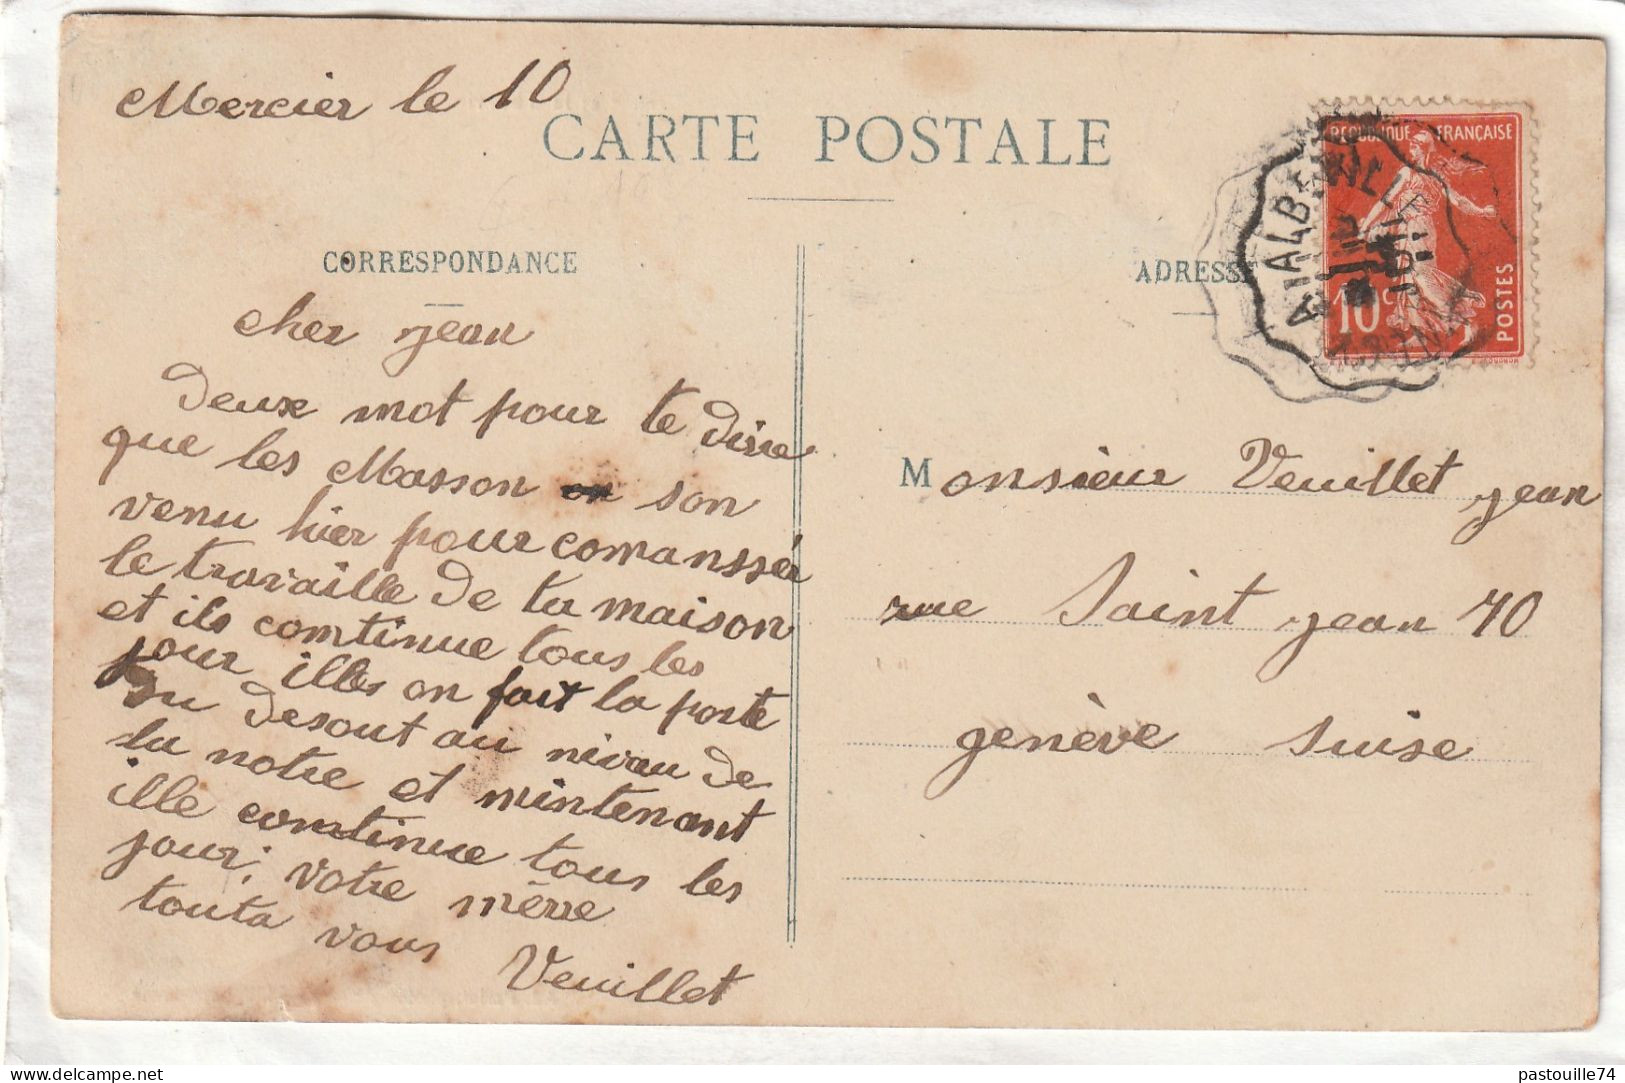 Mercier le 10
CARTE POSTALE
CORRESPONDANCE
cher jean
Deux mot pour te dire
que les Masson son
venu hier pour comanssér
le travaille de ta maison
et ils comtinue tous les
jour illes on fait la porte
du desout au nivau de
la notre et mintenant
ille comtinue tous les
jour; votre mère
touta vous
Veuillet
ADRESSE
REPUBLIQUE FRANÇAISE
10c
POSTES
ALBERTVILLE
Monsieur Veuillet jean
rue Saint jean 70
genève Suise
pastouille74